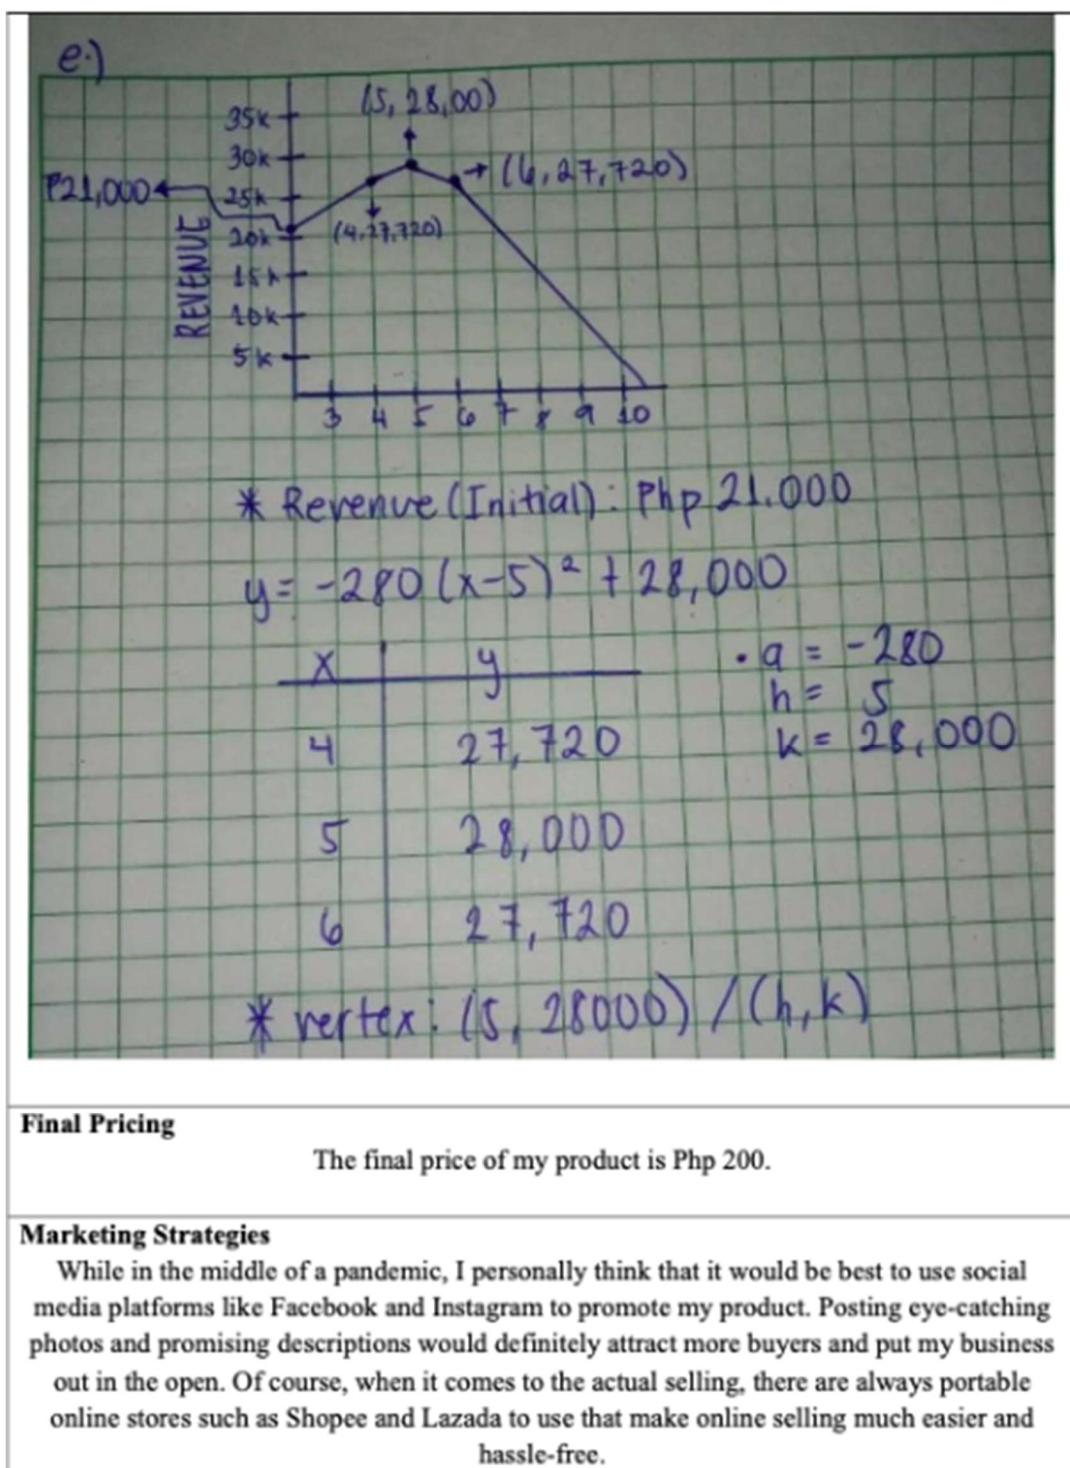 e.)
(5, 28,00)
35k
30k
(6, 27,720)
₱21,000
25k
20k
(4, 27,720)
15k
10k
5k
REVENUE
3 4 5 6 7 8 9 10
* Revenue (Initial): Php 21.000
y = -280 (x-5)² + 28,000
x y
• a = -280
h = 5
k = 28,000
4 27,720
5 28,000
6 27,720
* vertex: (5, 28000) / (h, k)
Final Pricing
The final price of my product is Php 200.
Marketing Strategies
While in the middle of a pandemic, I personally think that it would be best to use social
media platforms like Facebook and Instagram to promote my product. Posting eye-catching
photos and promising descriptions would definitely attract more buyers and put my business
out in the open. Of course, when it comes to the actual selling, there are always portable
online stores such as Shopee and Lazada to use that make online selling much easier and
hassle-free.